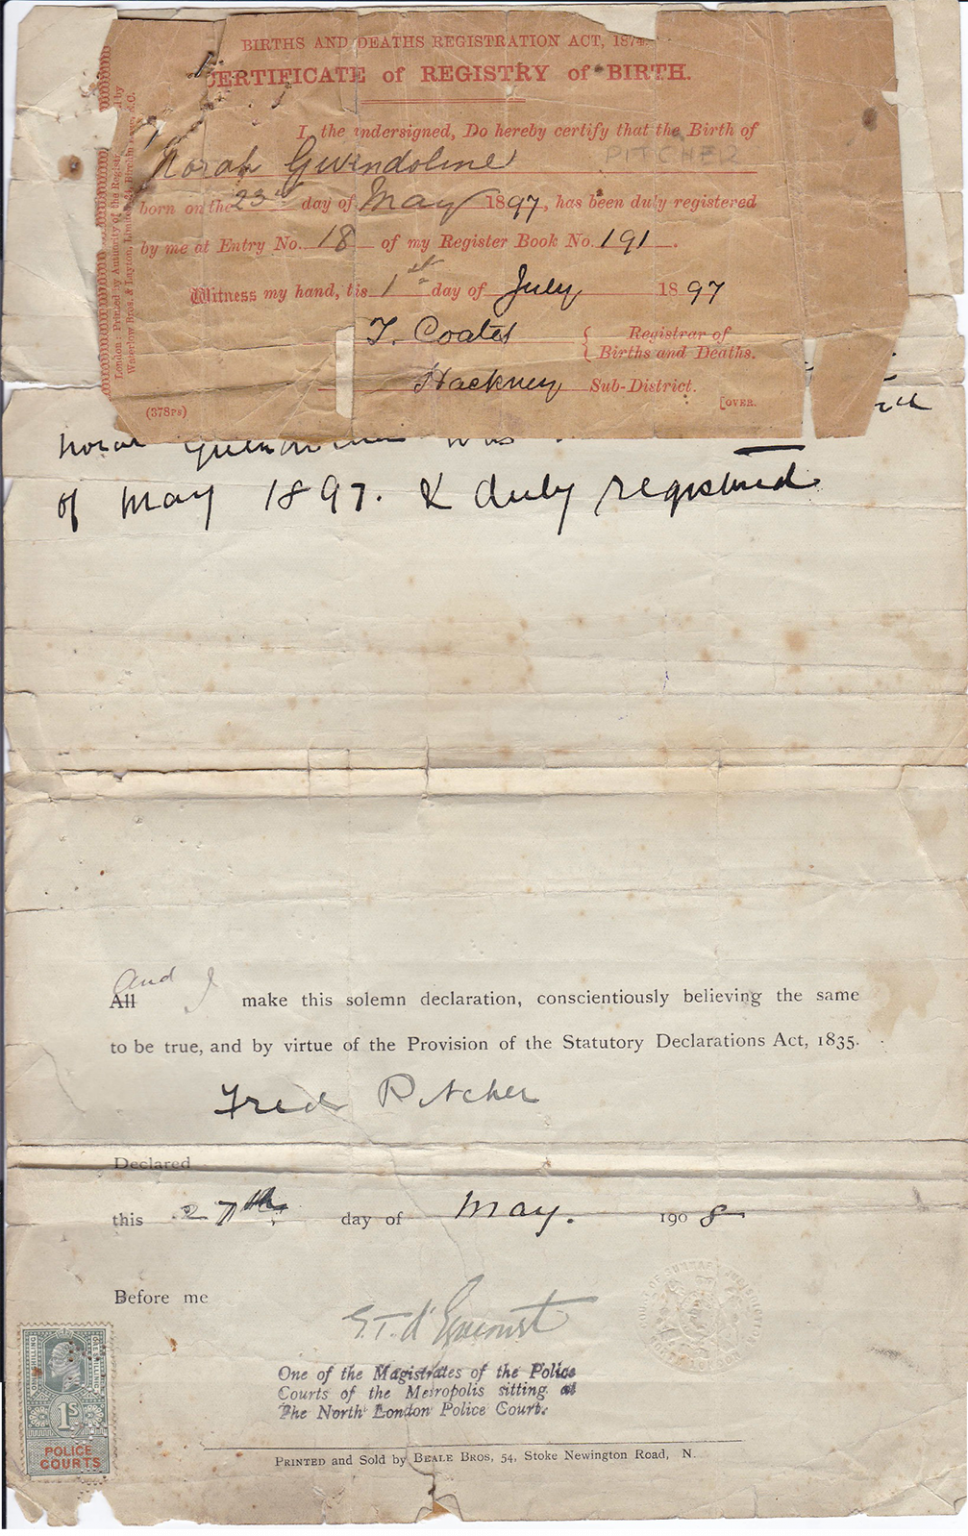 BIRTHS AND DEATHS REGISTRATION ACT, 1874.
CERTIFICATE of REGISTRY of BIRTH.
I, the undersigned, Do hereby certify that the Birth of
Norah Gwendoline PITCHER
born on the 23rd day of May 1897, has been duly registered
by me at Entry No. 18 of my Register Book No. 191.
Witness my hand, this 1st day of July 1897
T. Coates Registrar of
Births and Deaths.
Hackney Sub-District.
(378PS) [OVER.
London: Printed by Authority of the Registr
Waterlow Bros. & Layton, Limited
Norah Gwendoline was
of May 1897. & duly registered
And I
All make this solemn declaration, conscientiously believing the same
to be true, and by virtue of the Provision of the Statutory Declarations Act, 1835.
Fred Pitcher
Declared
this 27th day of May. 1908
Before me
One of the Magistrates of the Police
Courts of the Metropolis sitting at
The North London Police Court.
1S
POLICE
COURTS
PRINTED and Sold by BEALE BROS, 54, Stoke Newington Road, N.